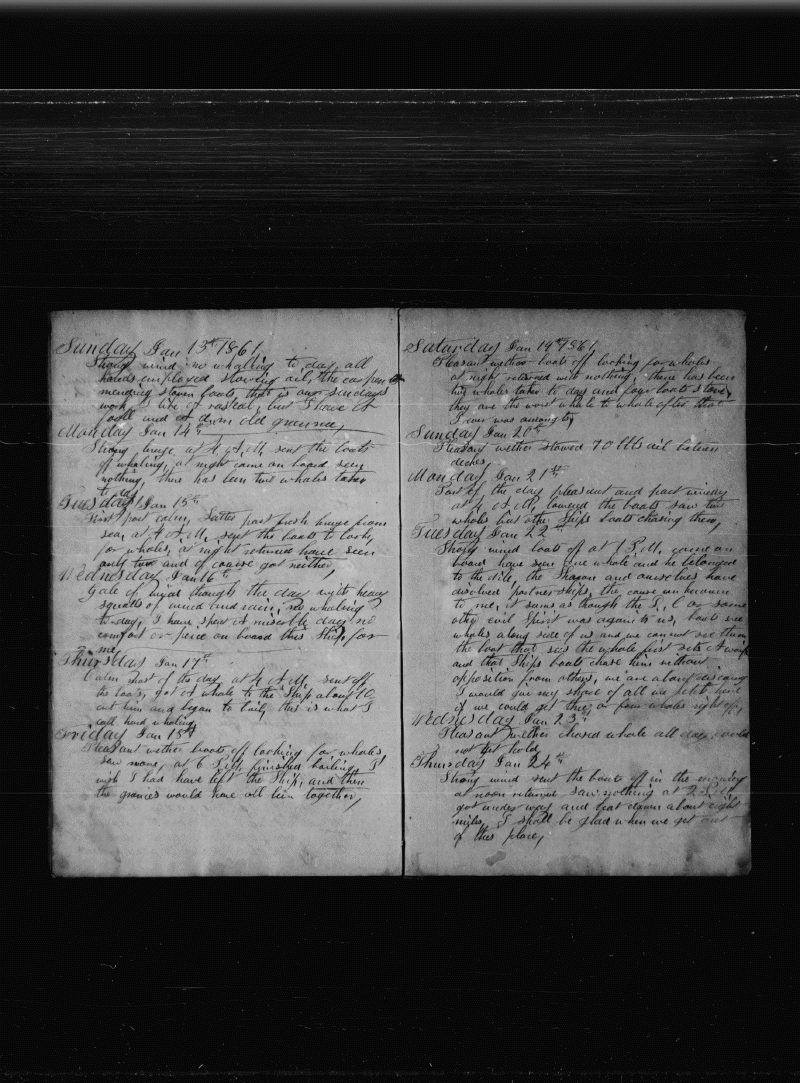 Sunday Jan 13th 1861
Strong wind no whalling to day, all
hands employed stowing oil, the carpen
mending stoven boats, that is our Sundays
work, I live of rascal, but I have it
all and
Monday Jan 14th
Strong breze, at 4 A.M. sent the boats
off whaling, at night came on board seen
nothing, there has been two whales taken
to day
Tuesday Jan 15th
First part calm, Latter part fresh breze from
sea, at 4 A.M. sent the boats to look,
for whales, at night returned have seen
only two and of coarse got neither,
Wednesday Jan 16th
Gale of wind though the day with heavy
squalls of wind and rain, no whaling
to-day, I have spent a miserbly day no
comfort or peice on board this Ship for
me,
Thursday Jan 17th
Calm most of the day, at 4 A.M. sent off
the boats, got A whale to the Ship about 10
cut him and began to boil, this is what I
call hard whaling,
Friday Jan 18th
Pleasant wether boats off looking for whales
saw none, at 6 P.M. finished boiling, I
wish I had have left the Ship, and then
the would have all been together,
Saturday Jan 19th 1861
Pleasant wether boats off looking for whales
at night returned with nothing, there has been
two whales taken to day and four boats stove,
they are the worst whale to whale after that
I ever was amongts,
Sunday Jan 20th
Pleasant wether stowed 70 bbls oil betwen
deckes,
Monday Jan 21st
Part of the day pleasant and part windy
at 4 A.M. lowered the boats saw two
whales but other Ships boats chasing them,
Tuesday Jan 22nd
Strong wind boats off at 1 P.M. came on
board have seen one whale and he belonged
to the dile, the Sharon and ourselves have
disolved partner ships, the cause unknown
to me, it seems as though the or some
other evil Spirit was against us, boats see
whales along side of us and we can not see them
the boat that sees the whale first sets A waif
and that Ships boats chase him without
opposition from others, we are along
I would give my share of all we get here
if we could get three or four whales right off,
Wednesday Jan 23rd
Pleasant wether chased whale all day could
not get hold,
Thursday Jan 24th
Strong wind sent the boats off in the morning
at noon returned saw nothing at 2 P.M.
got under way and beat down about eight
miles, I shall be glad when we get out
of this place,